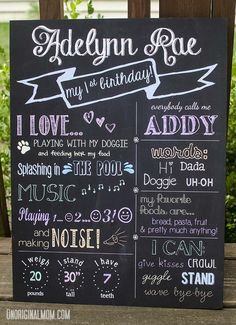 Adelynn Rae
my 1st birthday!
I LOVE...
PLAYING WITH MY DOGGIE
and feeding her my food
Splashing in THE POOL
MUSIC
Playing 1...2...3!
and making NOISE!
I weigh
20
pounds
I stand
30
tall
I have
7
teeth
everybody calls me
ADDY
words:
Hi Dada
Doggie UH-OH
my favorite
foods are...
bread, pasta, fruit
& pretty much anything!
I CAN:
give kisses CRAWL
giggle STAND
wave bye-bye
UNORIGINALMOM.COM